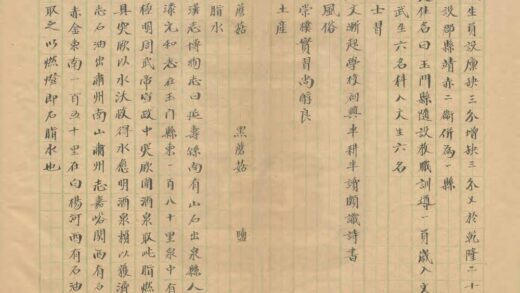 生員設廩缺三分增缺三分又於乾隆二十
設郡縣靖赤二衛併為一縣
此任名曰玉門縣隨設教職訓導一員歲入文
武生六名科入文生六名
士習
文漸起學校初興車耕半讀頗識詩書
風俗
崇樸實習尚醇良
土產
蘑菇 黑蘑菇 鹽
脂水
漢志博物志曰延壽縣南有山石出泉縣人
漆元和志在玉門縣東一百八十里泉中有
極明周武帝宣政中突厥圍酒泉取此脂燃
具突厥以水沃救得水應明酒泉賴以獲濟
志石油出肅州南山肅州志嘉峪關西有石
赤金東南一百五十里在白楊河西有石油
取之以燃燈即石脂水也